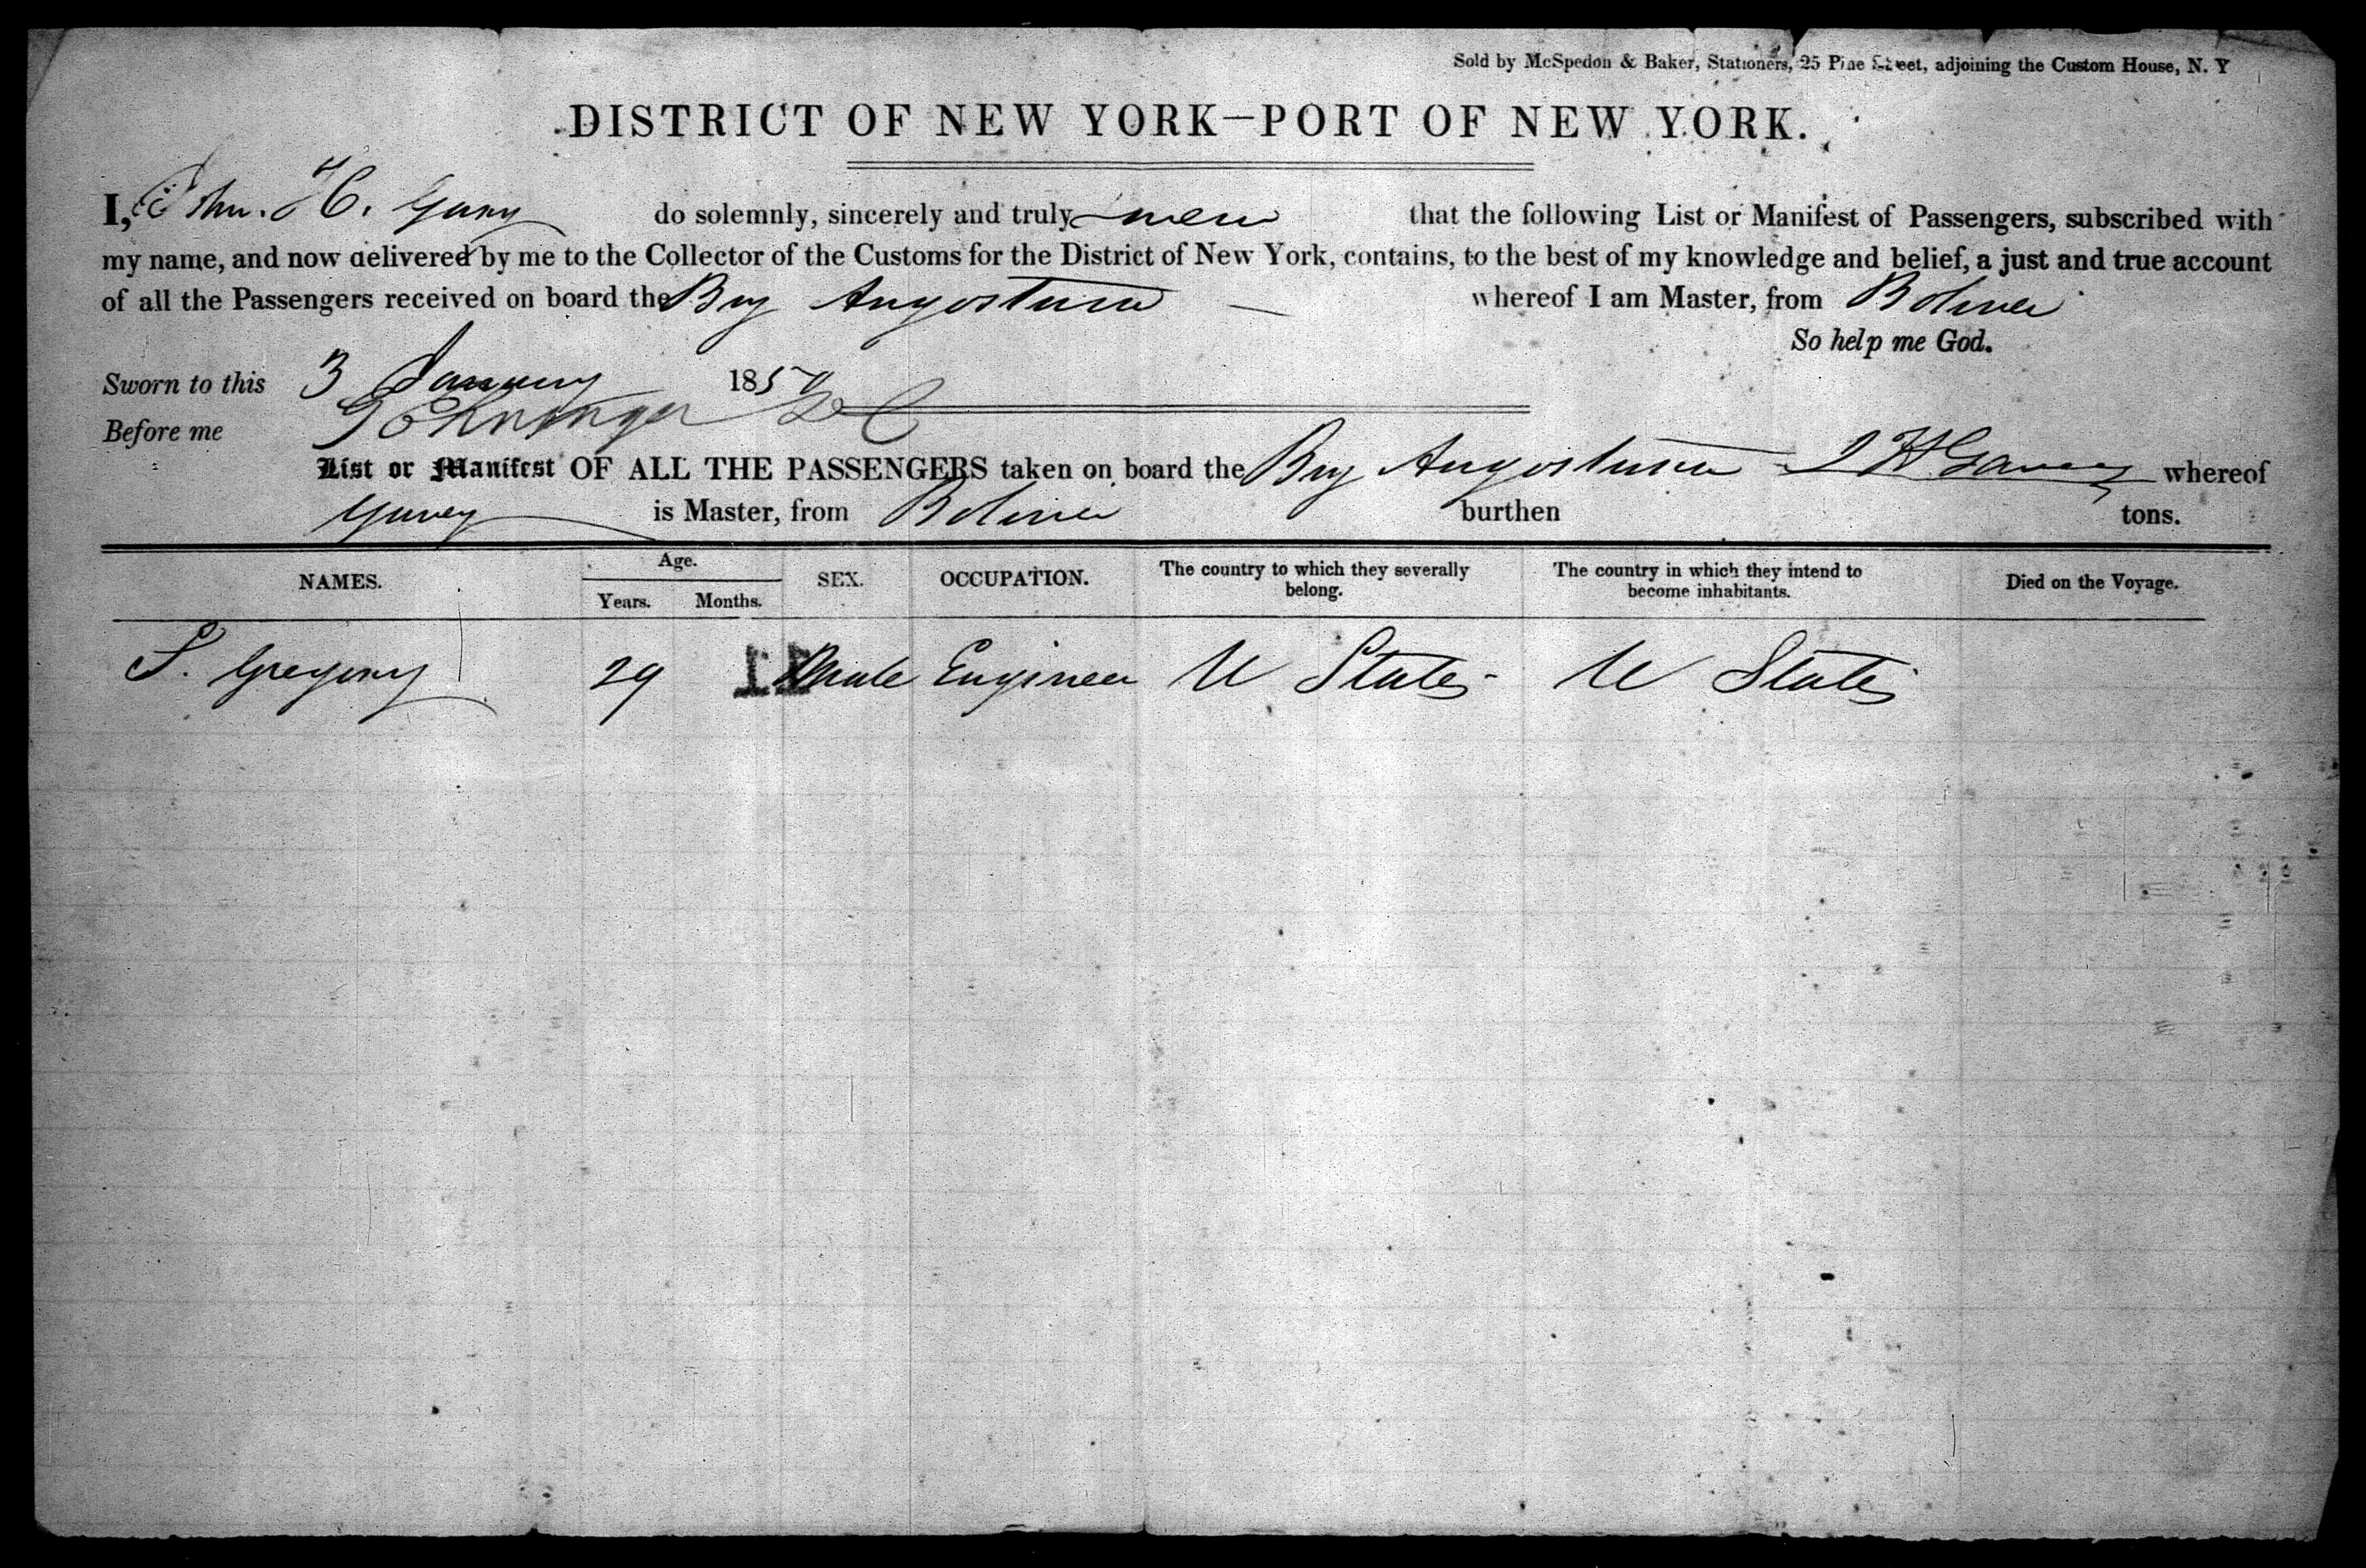 Sold by McSpedon & Baker, Stationers, 25 Pine Street, adjoining the Custom House, N. Y
DISTRICT OF NEW YORK—PORT OF NEW YORK.
I, John. H. do solemnly, sincerely and truly swear that the following List or Manifest of Passengers, subscribed with
my name, and now delivered by me to the Collector of the Customs for the District of New York, contains, to the best of my knowledge and belief, a just and true account
of all the Passengers received on board the Brig Angostura whereof I am Master, from Bolivar
So help me God.
Sworn to this 3 January 185
Before me
List or Manifest OF ALL THE PASSENGERS taken on board the Brig Angostura whereof
is Master, from Bolivar burthen tons.
NAMES. Age. SEX. OCCUPATION. The country to which they severally belong. The country in which they intend to become inhabitants. Died on the Voyage.
Years. Months.
S. Gregory 29 Male Engineer U States - U States